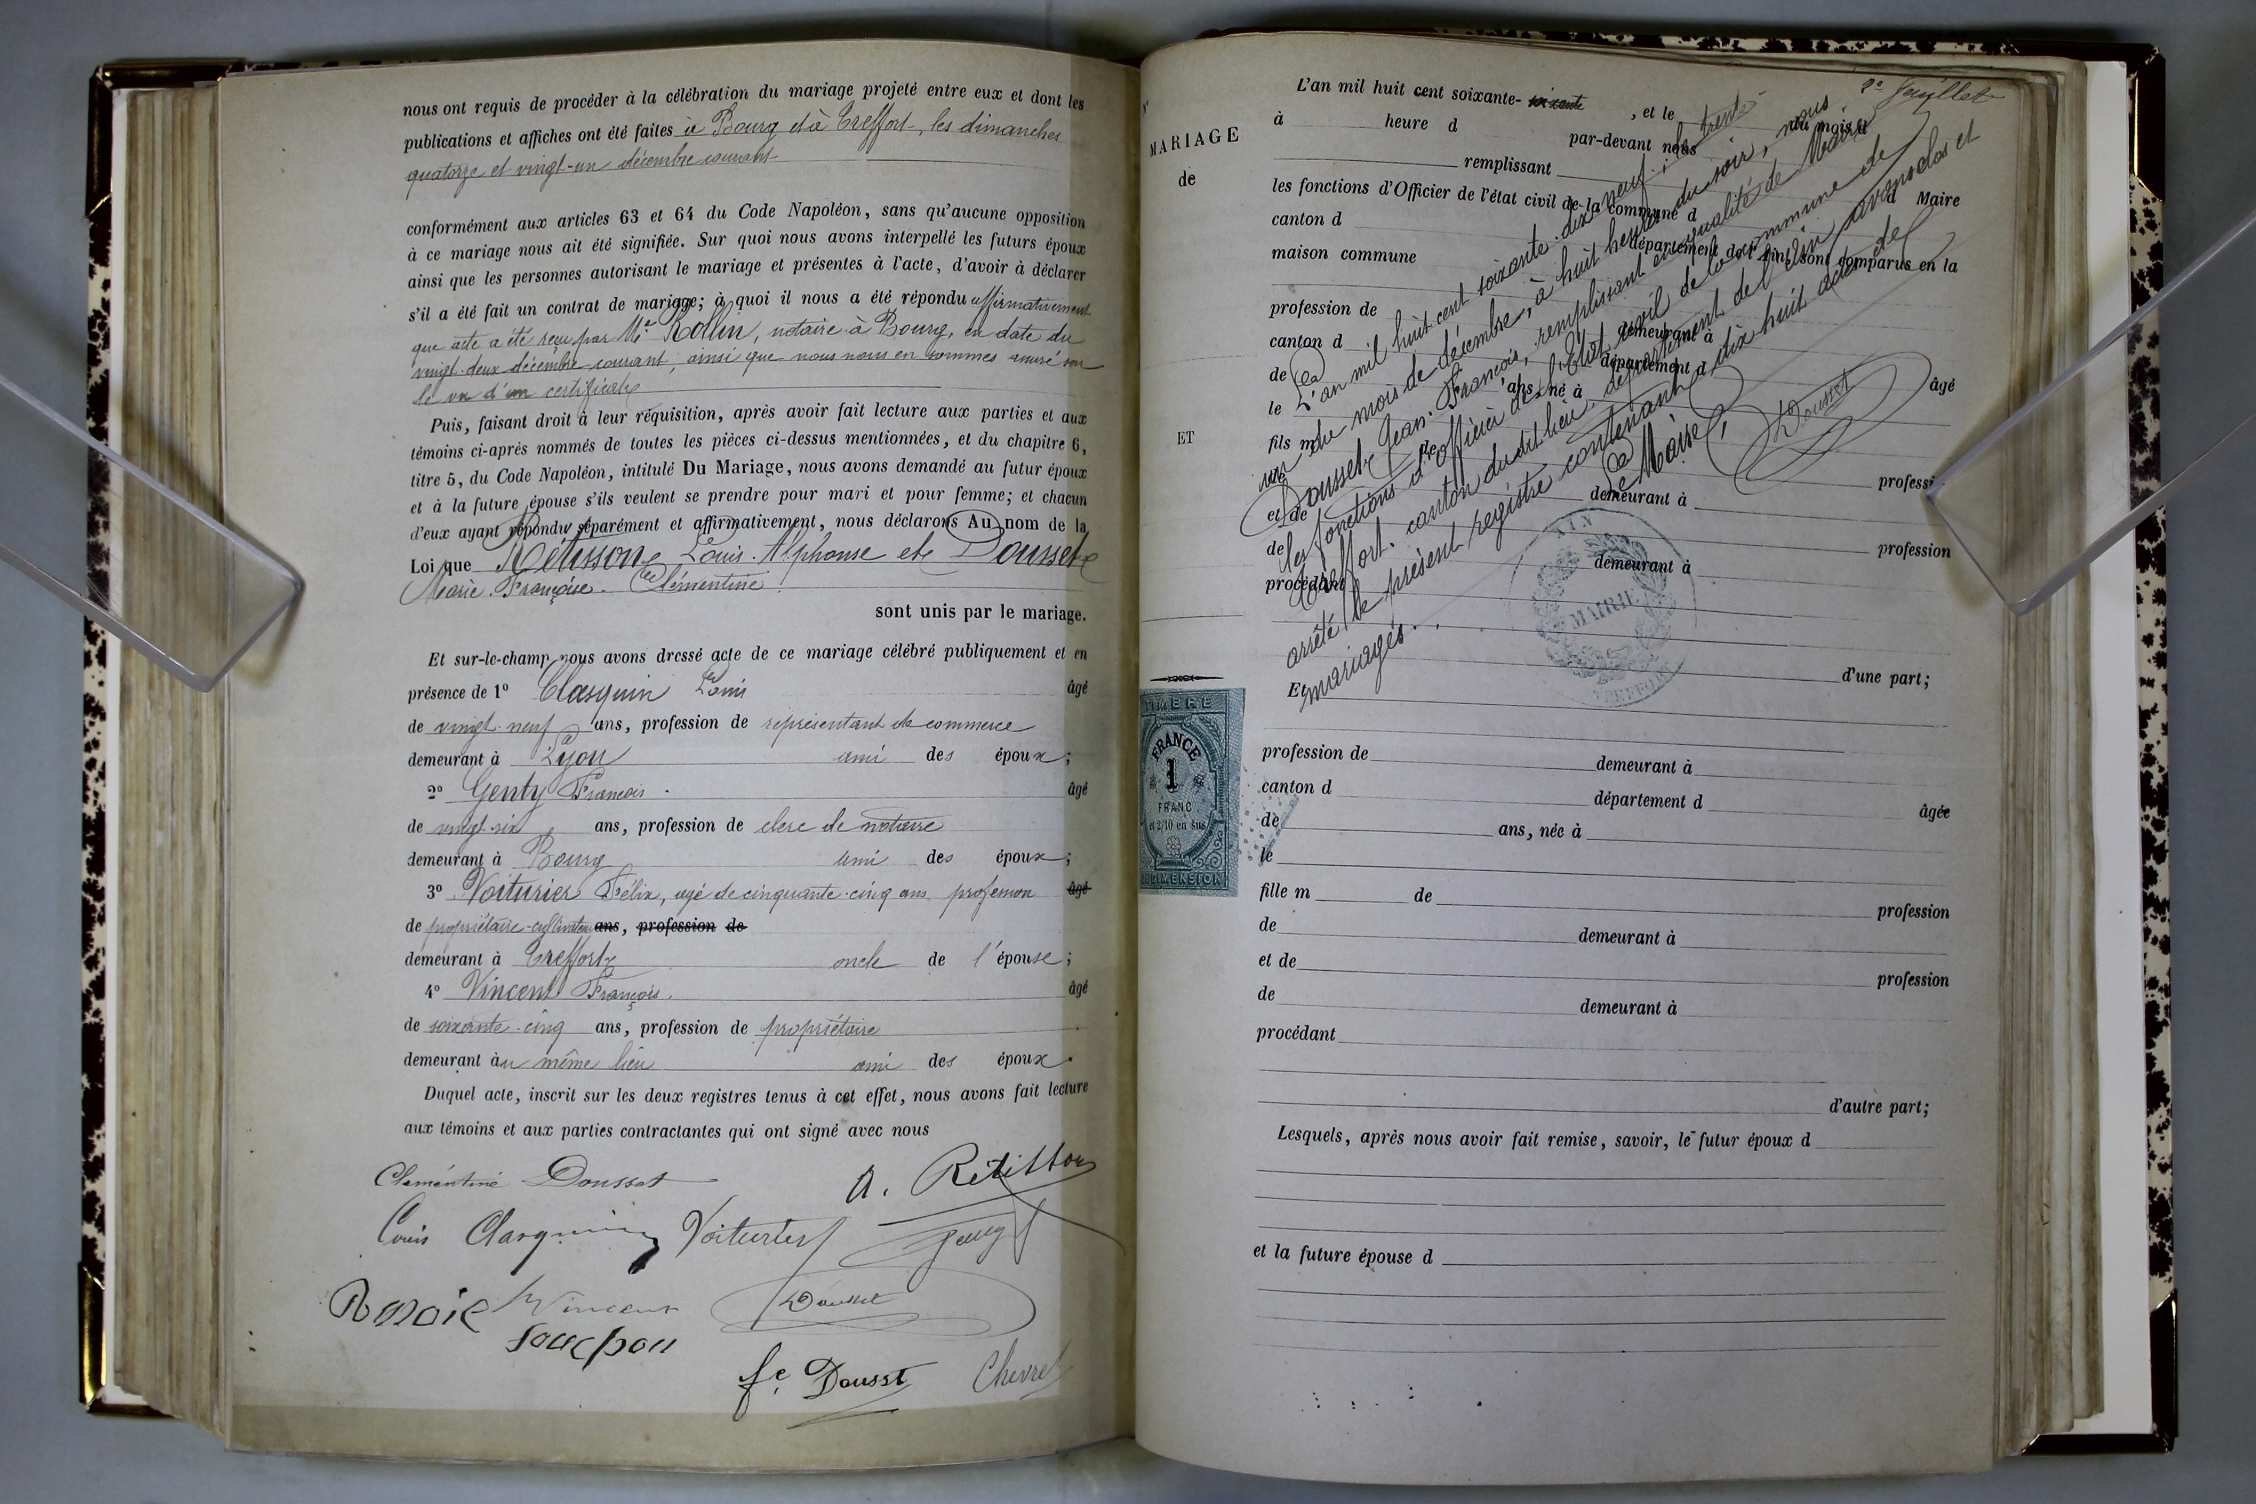 nous ont requis de procéder à la célébration du mariage projeté entre eux et dont les
publications et affiches ont été faites à Bourg et à Treffort, les dimanches
quatorze et vingt-un décembre courant
conformément aux articles 63 et 64 du Code Napoléon, sans qu'aucune opposition
à ce mariage nous ait été signifiée. Sur quoi nous avons interpellé les futurs époux
ainsi que les personnes autorisant le mariage et présentes à l'acte, d'avoir à déclarer
s'il a été fait un contrat de mariage; à quoi il nous a été répondu affirmativement
que acte a été reçu par Me Rollin, notaire à Bourg, en date du
vingt-deux décembre courant, ainsi que nous nous en sommes assuré sur
le vu d'un certificat
Puis, faisant droit à leur réquisition, après avoir fait lecture aux parties et aux
témoins ci-après nommés de toutes les pièces ci-dessus mentionnées, et du chapitre 6,
titre 5, du Code Napoléon, intitulé Du Mariage, nous avons demandé au futur époux
et à la future épouse s'ils veulent se prendre pour mari et pour femme; et chacun
d'eux ayant répondu séparément et affirmativement, nous déclarons Au nom de la
Loi que Rétisson Louis Alphonse et Dousset
Marie Françoise Clémentine
sont unis par le mariage.
Et sur-le-champ nous avons dressé acte de ce mariage célébré publiquement et en
présence de 1º Clasquin Louis âgé
de vingt-neuf ans, profession de représentant de commerce
demeurant à Lyon ami des époux;
2º Genty François âgé
de vingt-six ans, profession de clerc de notaire
demeurant à Bourg ami des époux;
3º Voiturier Félix, agé de cinquante-cinq ans profession âgé
de propriétaire-cultivateur ans, profession de
demeurant à Treffort oncle de l'épouse;
4º Vincent François âgé
de soixante-cinq ans, profession de propriétaire
demeurant au même lieu ami des époux.
Duquel acte, inscrit sur les deux registres tenus à cet effet, nous avons fait lecture
aux témoins et aux parties contractantes qui ont signé avec nous
Clémentine Dousset A. Rétisson
Louis Clasquin Voiturier Genty
Vincent Dousset
Souchon
fe. Dousst Chevret
MARIAGE
de
ET
TIMBRE
FRANCE
1
FRANC
et 2/10 en sus
DIMENSION
2e feuillet
L'an mil huit cent soixante- soixante , et le du mois d
à heure d par-devant nous
remplissant
les fonctions d'Officier de l'état civil de la commune d d Maire
canton d département de l'Ain, sont comparus en la
maison commune
profession de demeurant à
canton d département d
de ans né à âgé
le
fils m
et de demeurant à profession
de demeurant à profession
procédant
d'une part;
Et
L'an mil huit cent soixante-dix-neuf, le trente
un du mois de décembre, à huit heures du soir, nous
Dousset Jean-François, remplissant en qualité de Maire
les fonctions d'officier de l'Etat civil de la commune de
Treffort, canton du dit lieu, département de l'Ain avons clos et
arrêté le présent registre contenant dix huit actes de
mariages.
Le Maire,
Dousset
AIN
MAIRIE
TREFFORT
profession de demeurant à
canton d département d
de ans, née à âgée
le
fille m de
de demeurant à profession
et de
de demeurant à profession
procédant
d'autre part;
Lesquels, après nous avoir fait remise, savoir, le futur époux d
et la future épouse d